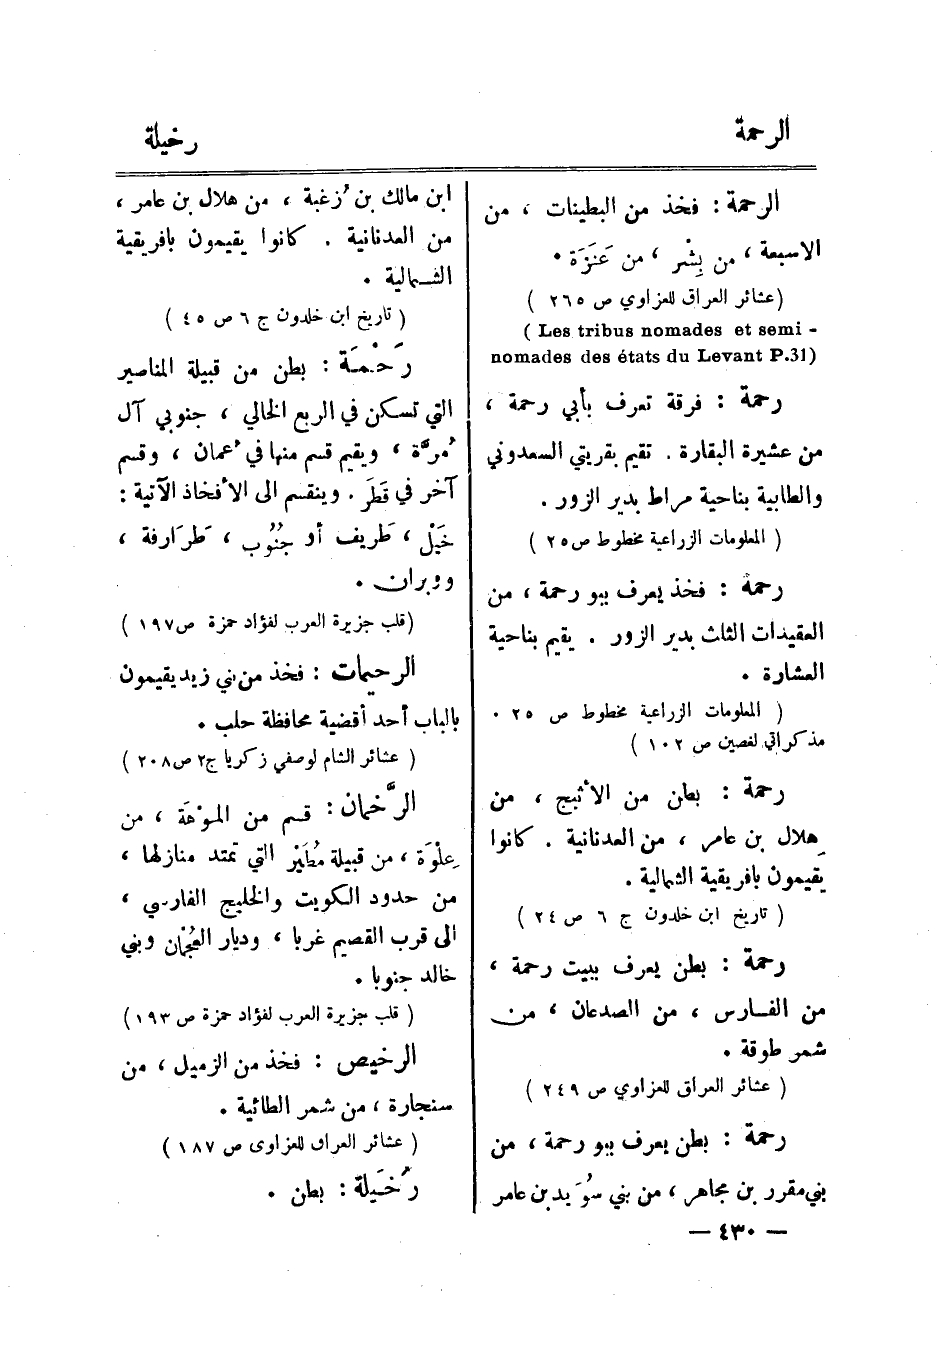 الرحمة
رخيلة
الرحمة : فخذ من البطينات ، من
الاسبعة ، من بِشْر ، من عَنَزَة .
( عشائر العراق للعزاوي ص ٢٦٥ )
( Les tribus nomades et semi -
nomades des états du Levant P.31)
رحمة : فرقة تعرف بأبي رحمة ،
من عشيرة البقارة . تقيم بقريتي السعدوني
والطابية بناحية مراط بدير الزور .
( المعلومات الزراعية مخطوط ص ٢٥ )
رحمة : فخذ يعرف ببو رحمة ، من
العقيدات الثلث بدير الزور . يقيم بناحية
العشارة .
( المعلومات الزراعية مخطوط ص ٢٥ .
مذكراتي لفصين ص ١٠٢ )
رحمة : بطن من الأثبج ، من
هِلال بن عامر ، من العدنانية . كانوا
يقيمون بافريقية الشمالية .
( تاريخ ابن خلدون ج ٦ ص ٢٤ )
رحمة : بطن يعرف ببيت رحمة ،
من الفارس ، من الصدعان ، من
شمر طوقة .
( عشائر العراق للعزاوي ص ٢٤٩ )
رحمة : بطن يعرف ببو رحمة ، من
بني مقرر بن مجاهر ، من بني سُوَيد بن عامر
ابن مالك بن زُغبة ، من هلال بن عامر ،
من العدنانية . كانوا يقيمون بافريقية
الشمالية .
( تاريخ ابن خلدون ج ٦ ص ٤٥ )
رَحْمَة : بطن من قبيلة المناصير
التي تسكن في الربع الخالي ، جنوبي آل
مُرَّة ، ويقيم قسم منها في عُمان ، وقسم
آخر في قَطَر . وينقسم الى الأفخاذ الآتية :
خَيْل ، طَريف أو جنُوُب ، طَرَارفة ،
ووبران .
( قلب جزيرة العرب لفؤاد حمزة ص ١٩٧ )
الرحيمات : فخذ من بني زيد يقيمون
بالباب أحد أقضية محافظة حلب .
( عشائر الشام لوصفي زكريا ج٢ ص ٢٠٨ )
الرَّخمان : قسم من المَوْهَة ، من
عِلْوَة ، من قبيلة مُطَيْر التي تمتد منازلها ،
من حدود الكويت والخليج الفارسي ،
الى قرب القصيم غربا ، وديار العُجْمان وبني
خالد جنوبا .
( قلب جزيرة العرب لفؤاد حمزة ص ١٩٣ )
الرخيص : فخذ من الزميل ، من
سنجارة ، من شمر الطائية .
( عشائر العراق للعزاوى ص ١٨٧ )
رُخَيلة : بطن .
— ٤٣٠ —